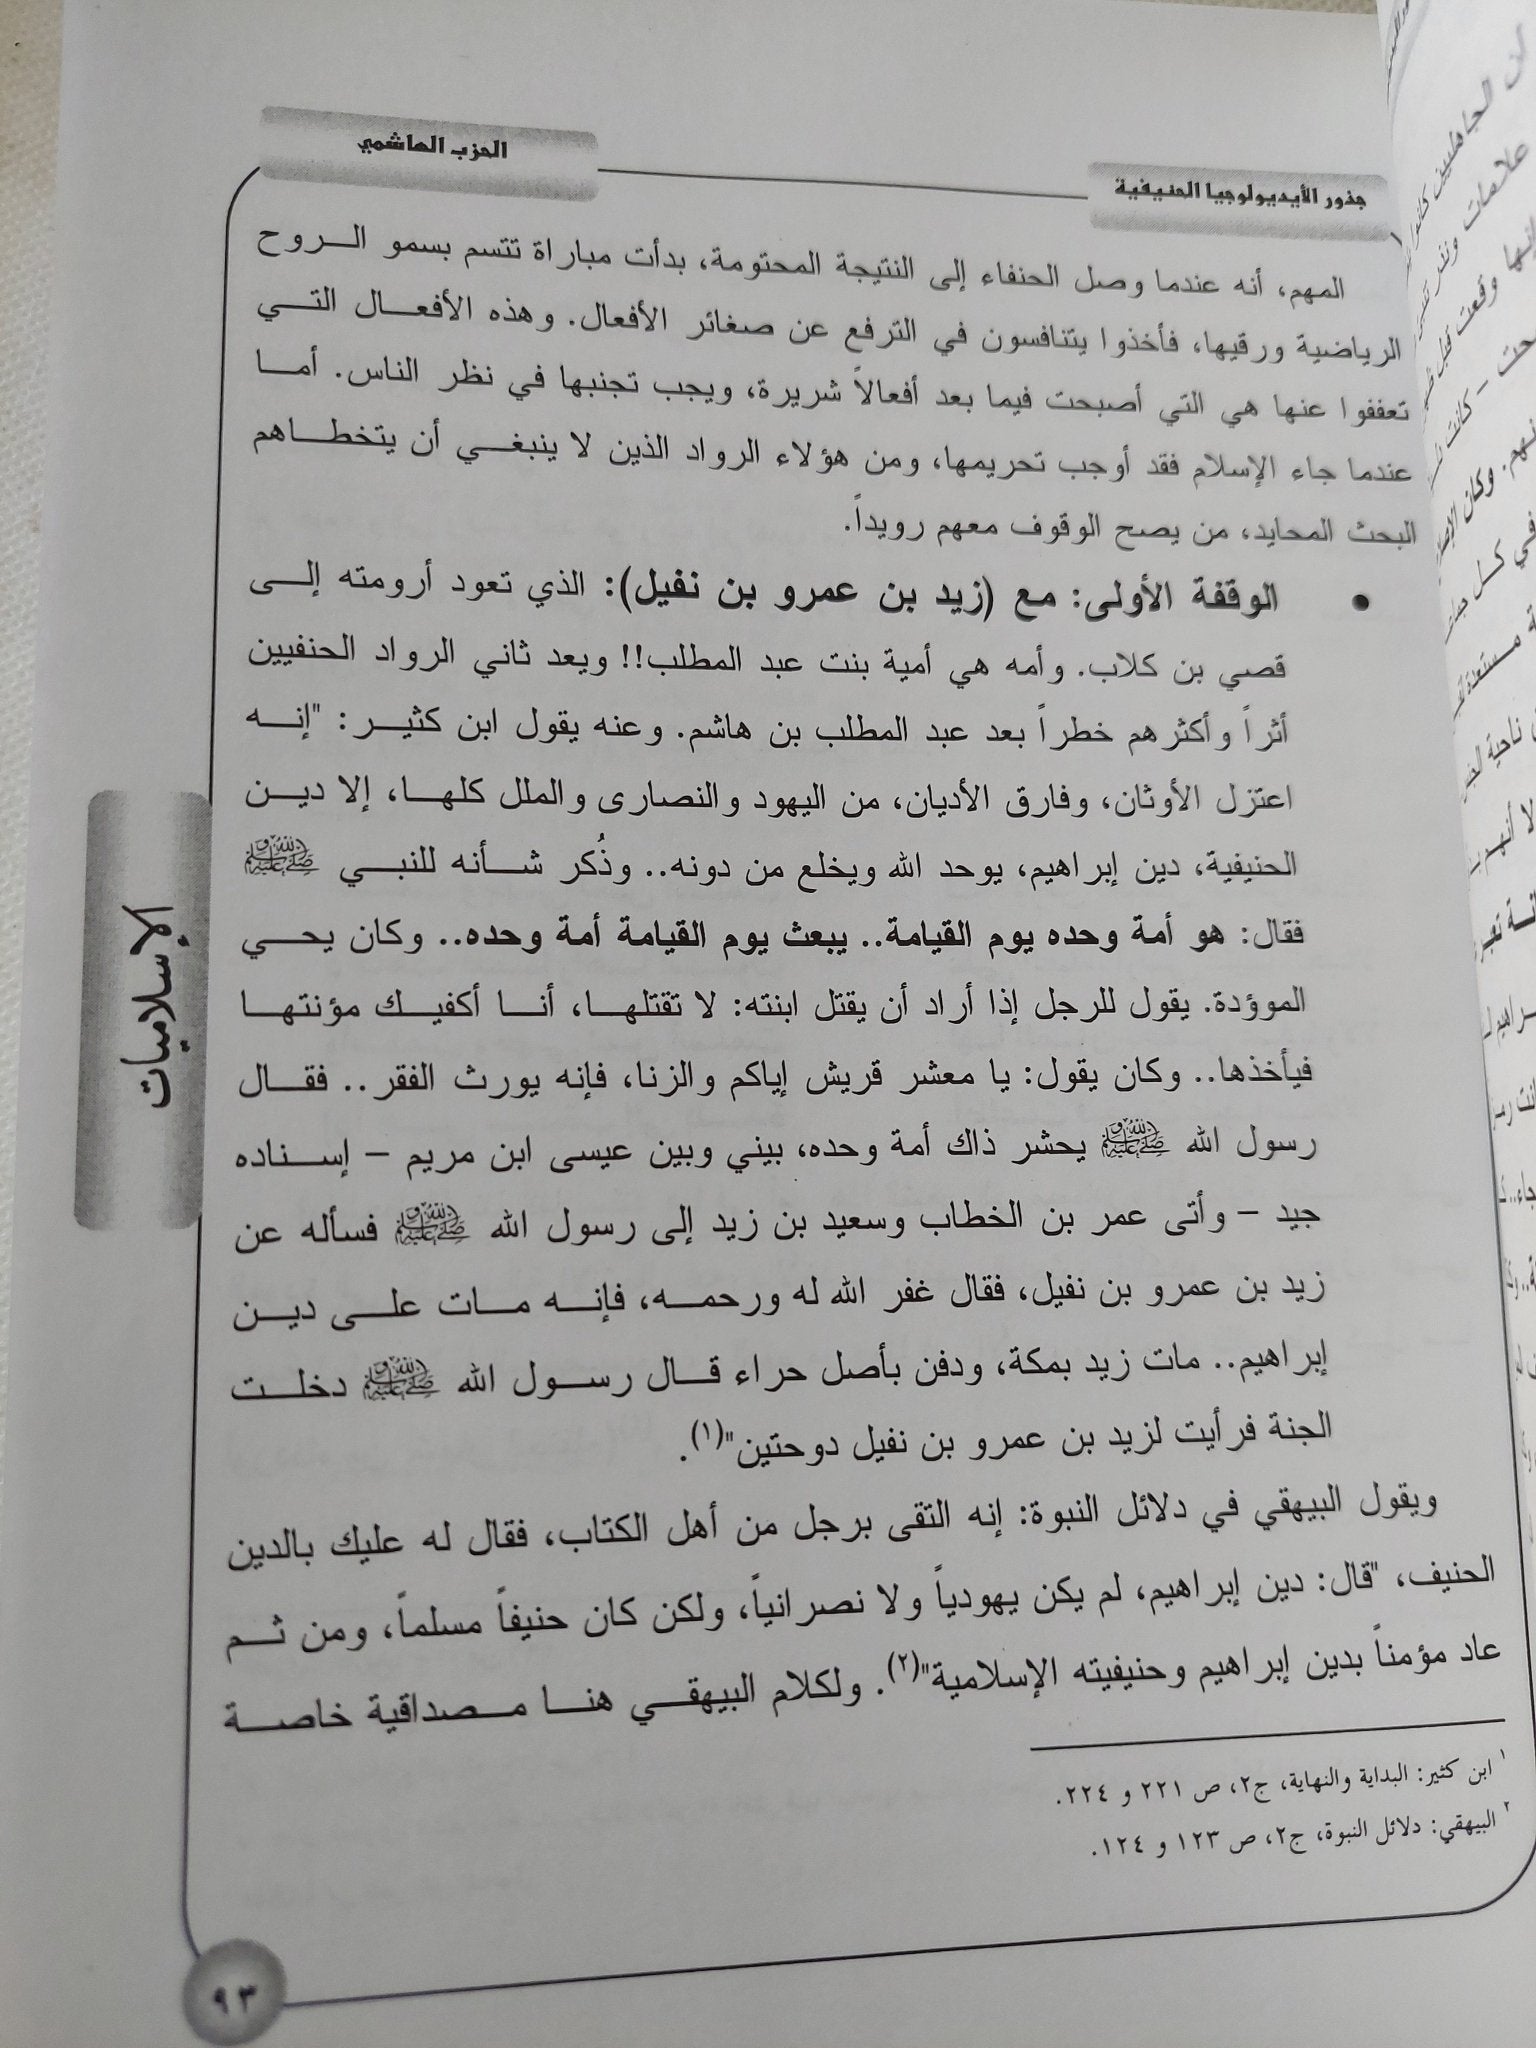 جذور الأيديولوجيا الحنيفية
الحزب الهاشمي
المهم، أنه عندما وصل الحنفاء إلى النتيجة المحتومة، بدأت مباراة تتسم بسمو الروح
الرياضية ورقيها، فأخذوا يتنافسون في الترفع عن صغائر الأفعال. وهذه الأفعال التي
تعففوا عنها هي التي أصبحت فيما بعد أفعالاً شريرة، ويجب تجنبها في نظر الناس. أما
عندما جاء الإسلام فقد أوجب تحريمها، ومن هؤلاء الرواد الذين لا ينبغي أن يتخطاهم
البحث المحايد، من يصح الوقوف معهم رويداً.
• الوقفة الأولى: مع (زيد بن عمرو بن نفيل): الذي تعود أرومته إلى
قصي بن كلاب. وأمه هي أمية بنت عبد المطلب!! ويعد ثاني الرواد الحنفيين
أثراً وأكثرهم خطراً بعد عبد المطلب بن هاشم. وعنه يقول ابن كثير: "إنه
اعتزل الأوثان، وفارق الأديان، من اليهود والنصارى والملل كلها، إلا دين
الحنيفية، دين إبراهيم، يوحد الله ويخلع من دونه.. وذُكر شأنه للنبي ﷺ
فقال: هو أمة وحده يوم القيامة.. يبعث يوم القيامة أمة وحده.. وكان يحي
الموؤدة. يقول للرجل إذا أراد أن يقتل ابنته: لا تقتلها، أنا أكفيك مؤنتها
فيأخذها.. وكان يقول: يا معشر قريش إياكم والزنا، فإنه يورث الفقر.. فقال
رسول الله ﷺ يحشر ذاك أمة وحده، بيني وبين عيسى ابن مريم – إسناده
جيد – وأتى عمر بن الخطاب وسعيد بن زيد إلى رسول الله ﷺ فسأله عن
زيد بن عمرو بن نفيل، فقال غفر الله له ورحمه، فإنه مات على دين
إبراهيم.. مات زيد بمكة، ودفن بأصل حراء قال رسول الله ﷺ دخلت
الجنة فرأيت لزيد بن عمرو بن نفيل دوحتين"(١).
ويقول البيهقي في دلائل النبوة: إنه التقى برجل من أهل الكتاب، فقال له عليك بالدين
الحنيف، "قال: دين إبراهيم، لم يكن يهودياً ولا نصرانياً، ولكن كان حنيفاً مسلماً، ومن ثم
عاد مؤمناً بدين إبراهيم وحنيفيته الإسلامية"(٢). ولكلام البيهقي هنا مصداقية خاصة
١ ابن كثير: البداية والنهاية، ج٢، ص ٢٢١ و ٢٢٤.
٢ البيهقي: دلائل النبوة، ج٢، ص ١٢٣ و ١٢٤.
الإسلاميات
٩٣